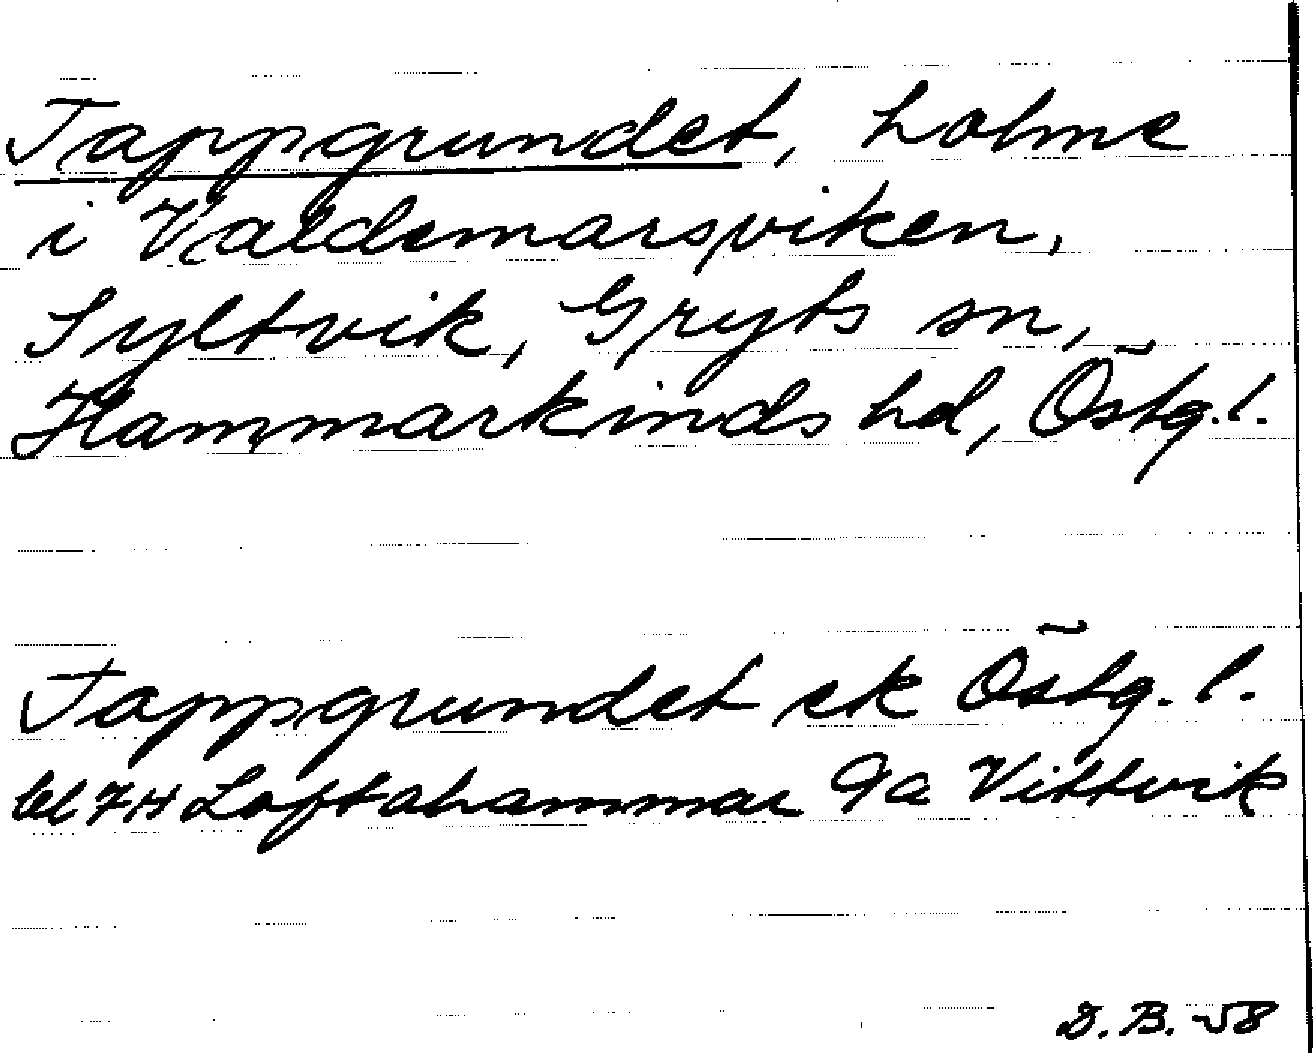 Tappgrundet, holme
i Valdemarsviken,
Syltvik, Gryts sn,
Hammarkinds hd, Östg.l.
Tappgrundet ek Östg.l.
bl 7H Loftahammar 9a Vittvik
D.B.-58